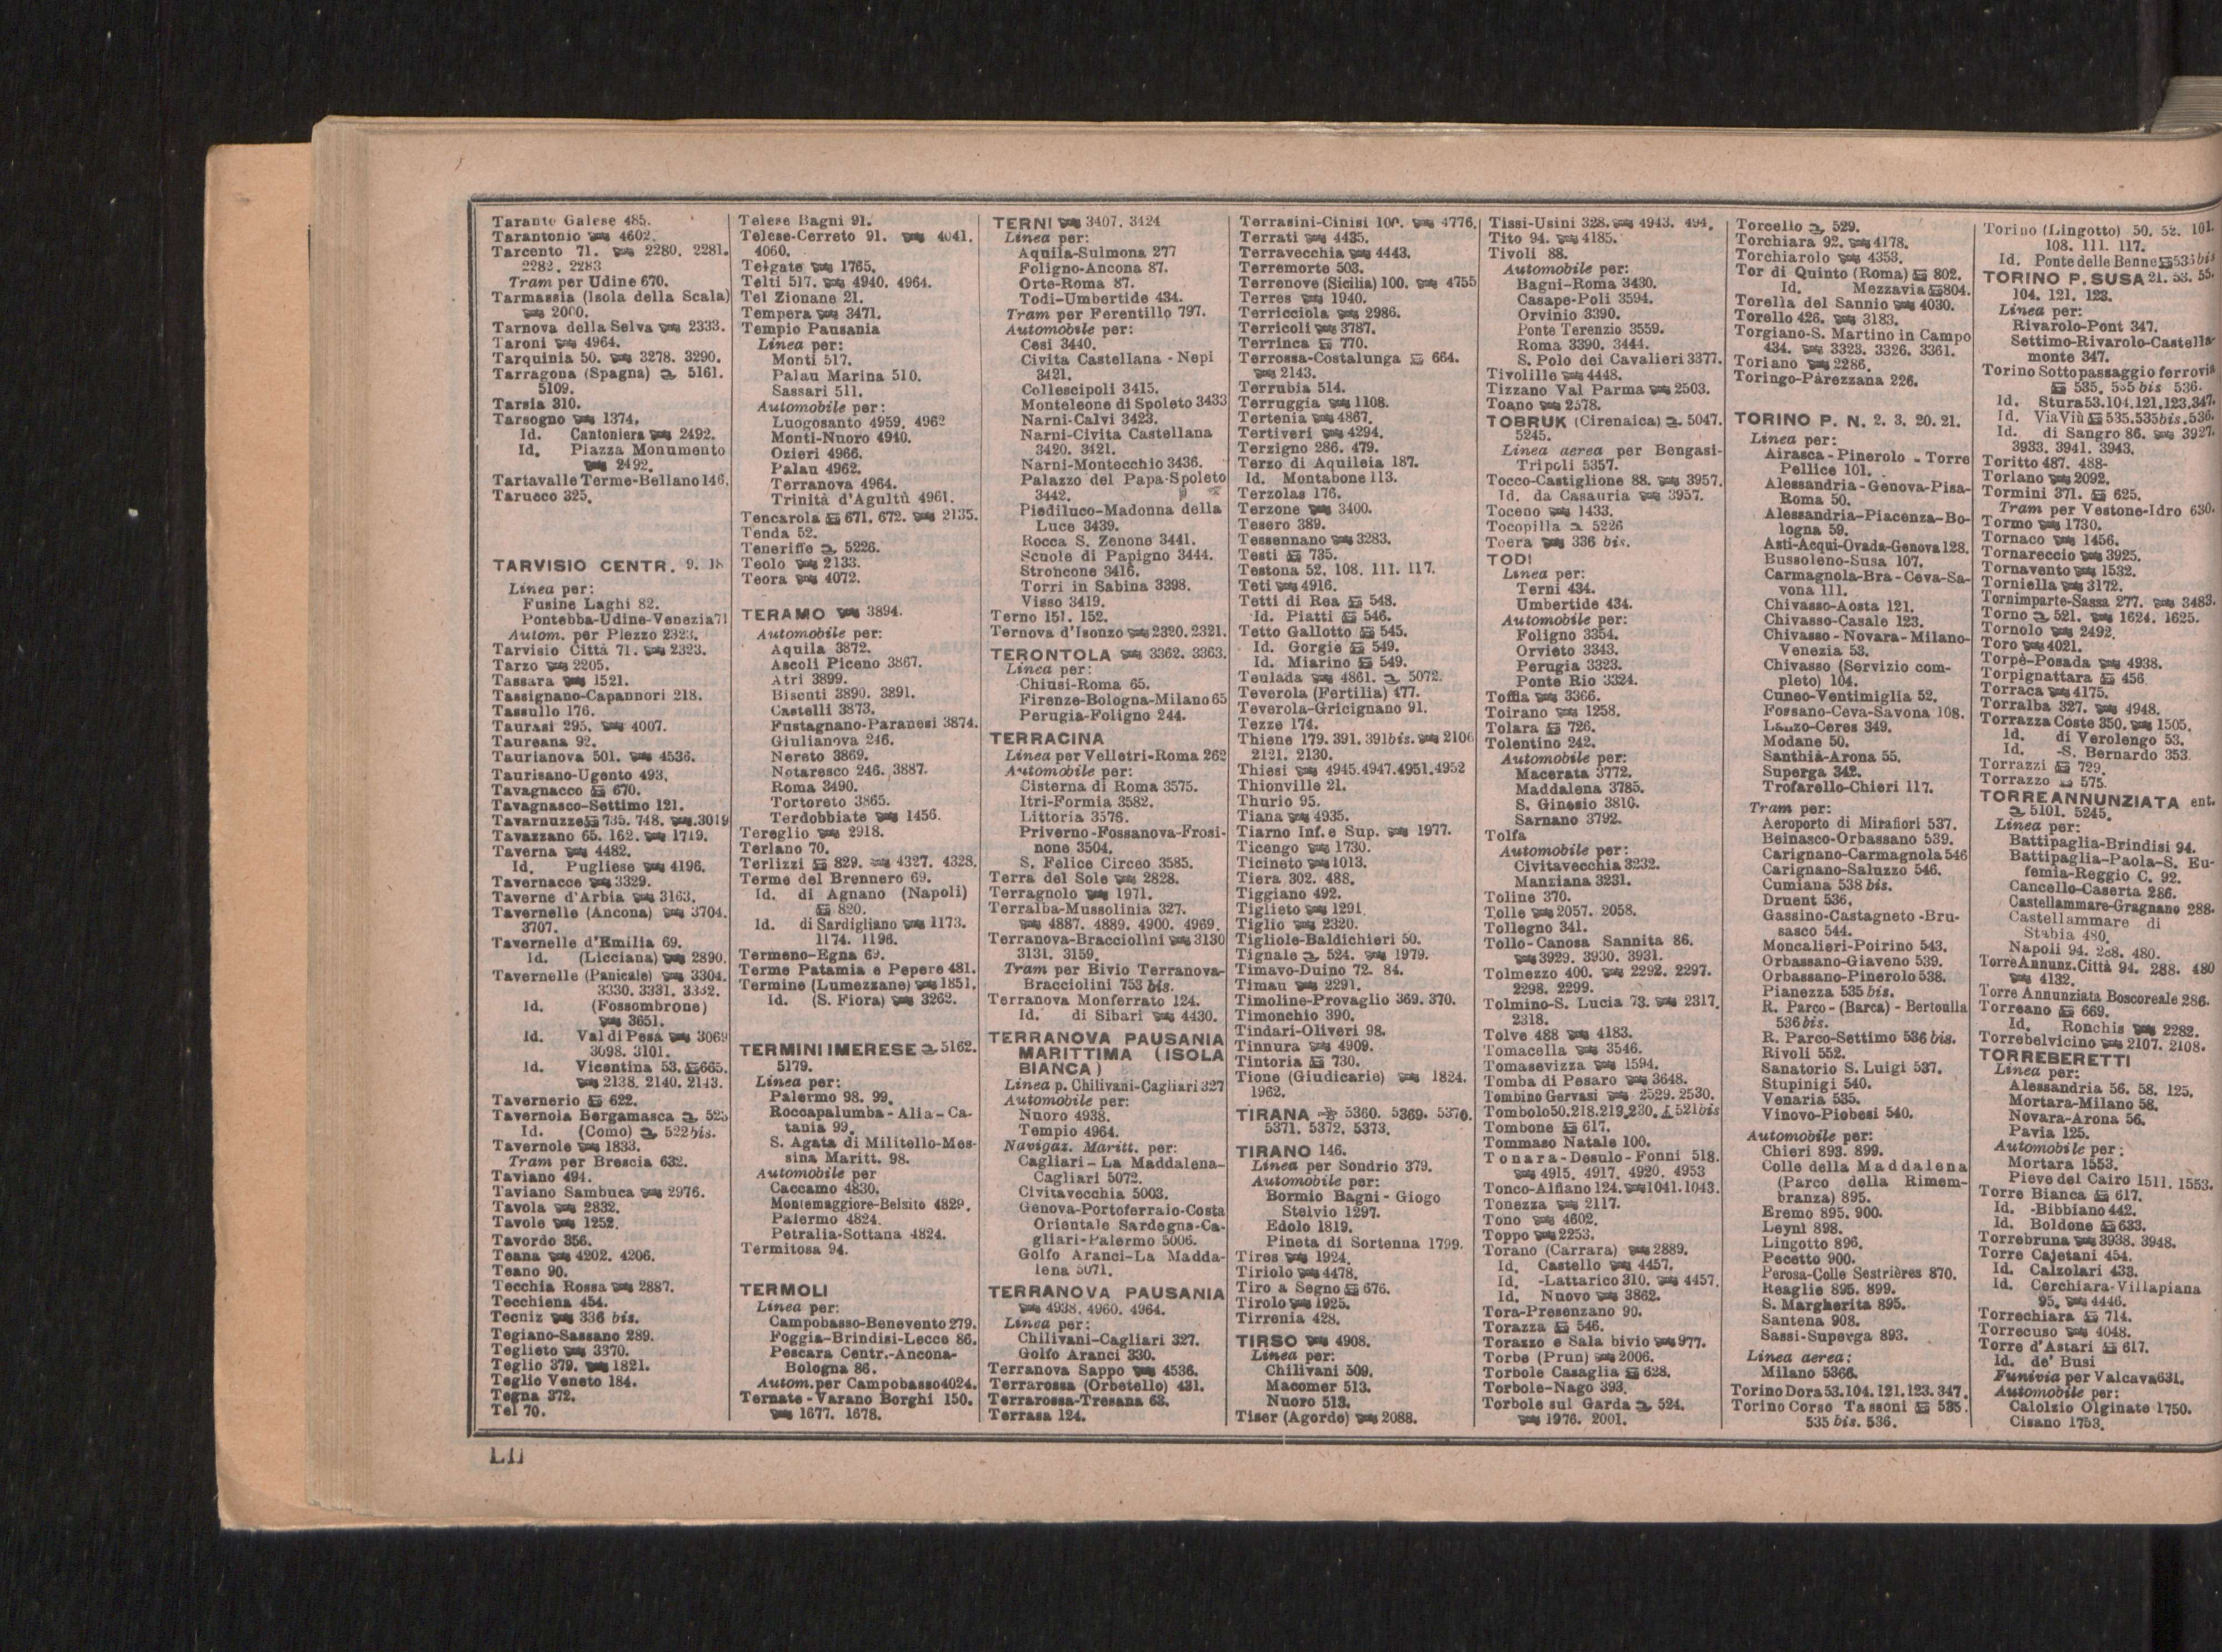 Taranto Galese 485.
Tarantonio 4602.
Tarcento 71. 2280. 2281.
2282. 2283
Tram per Udine 670.
Tarmassia (Isola della Scala)
2000.
Tarnova della Selva 2333.
Taroni 4964.
Tarquinia 50. 3278. 3290.
Tarragona (Spagna) 5161.
5109.
Tarsia 310.
Tarsogno 1374.
Id. Cantoniera 2492.
Id. Piazza Monumento
2492.
Tartavalle Terme-Bellano 146.
Tarueco 325.
TARVISIO CENTR. 9. 18
Linea per:
Fusine Laghi 82.
Pontebba-Udine-Venezia 71
Autom. per Plezzo 2323.
Tarvisio Città 71. 2323.
Tarzo 2205.
Tassara 1521.
Tassignano-Capannori 218.
Tassullo 176.
Taurasi 295. 4007.
Taureana 92.
Taurianova 501. 4536.
Taurisano-Ugento 493.
Tavagnacco 670.
Tavagnasco-Settimo 121.
Tavarnuzze 735. 748. 3019
Tavazzano 65. 162. 1719.
Taverna 4482.
Id. Pugliese 4196.
Tavernacce 3329.
Taverne d'Arbia 3163.
Tavernelle (Ancona) 3704.
3707.
Tavernelle d'Emilia 69.
Id. (Licciana) 2890.
Tavernelle (Panicale) 3304.
3330. 3331. 3332.
Id. (Fossombrone)
3651.
Id. Val di Pesa 3069
3098. 3101.
Id. Vicentina 53. 665.
2138. 2140. 2143.
Tavernerio 622.
Tavernola Bergamasca 523
Id. (Como) 522 bis.
Tavernole 1833.
Tram per Brescia 632.
Taviano 494.
Taviano Sambuca 2976.
Tavola 2832.
Tavole 1252.
Tavordo 356.
Teana 4202. 4206.
Teano 90.
Tecchia Rossa 2887.
Tecchiena 454.
Tecniz 336 bis.
Tegiano-Sassano 289.
Teglieto 3370.
Teglio 379. 1821.
Teglio Veneto 184.
Tegna 372.
Tel 70.
LII
Telese Bagni 91.
Telese-Cerreto 91. 4041.
4060.
Telgate 1765.
Telti 517. 4940. 4964.
Tel Zionane 21.
Tempera 3471.
Tempio Pausania
Linea per:
Monti 517.
Palau Marina 510.
Sassari 511.
Automobile per:
Luogosanto 4959. 4962
Monti-Nuoro 4940.
Ozieri 4966.
Palau 4962.
Terranova 4964.
Trinità d'Agultù 4961.
Tencarola 671. 672. 2135.
Tenda 52.
Teneriffe 5226.
Teolo 2133.
Teora 4072.
TERAMO 3894.
Automobile per:
Aquila 3872.
Ascoli Piceno 3867.
Atri 3899.
Bisenti 3890. 3891.
Castelli 3873.
Fustagnano-Paranesi 3874.
Giulianova 246.
Nereto 3869.
Notaresco 246. 3887.
Roma 3490.
Tortoreto 3865.
Terdobbiate 1456.
Tereglio 2918.
Terlano 70.
Terlizzi 829. 4327. 4328.
Terme del Brennero 69.
Id. di Agnano (Napoli)
820.
Id. di Sardigliano 1173.
1174. 1196.
Termeno-Egna 69.
Terme Patamia e Pepere 481.
Termine (Lumezzane) 1851.
Id. (S. Fiora) 3262.
TERMINI IMERESE 5162.
5179.
Linea per:
Palermo 98. 99.
Roccapalumba-Alia-Ca-
tania 99.
S. Agata di Militello-Mes-
sina Maritt. 98.
Automobile per
Caccamo 4830.
Montemaggiore-Belsito 4829.
Palermo 4824.
Petralia-Sottana 4824.
Termitosa 94.
TERMOLI
Linea per:
Campobasso-Benevento 279.
Foggia-Brindisi-Lecce 86.
Pescara Centr.-Ancona-
Bologna 86.
Autom. per Campobasso 4024.
Ternate-Varano Borghi 150.
1677. 1678.
TERNI 3407. 3424
Linea per:
Aquila-Sulmona 277
Foligno-Ancona 87.
Orte-Roma 87.
Todi-Umbertide 434.
Tram per Ferentillo 797.
Automobile per:
Cesi 3440.
Civita Castellana - Nepi
3421.
Collescipoli 3415.
Monteleone di Spoleto 3433
Narni-Calvi 3423.
Narni-Civita Castellana
3420. 3421.
Narni-Montecchio 3436.
Palazzo del Papa-Spoleto
3442.
Piediluco-Madonna della
Luce 3439.
Rocca S. Zenone 3441.
Scuole di Papigno 3444.
Stroncone 3416.
Torri in Sabina 3398.
Visso 3419.
Terno 151. 152.
Ternova d'Isonzo 2320. 2321.
TERONTOLA 3362. 3363.
Linea per:
Chiusi-Roma 65.
Firenze-Bologna-Milano 65
Perugia-Foligno 244.
TERRACINA
Linea per Velletri-Roma 262
Automobile per:
Cisterna di Roma 3575.
Itri-Formia 3582.
Littoria 3576.
Priverno-Fossanova-Frosi-
none 3504.
S. Felice Circeo 3585.
Terra del Sole 2828.
Terragnolo 1971.
Terralba-Mussolinia 327.
4887. 4889. 4900. 4969.
Terranova-Bracciolini 3130
3131. 3159.
Tram per Bivio Terranova-
Bracciolini 753 bis.
Terranova Monferrato 124.
Id. di Sibari 4430.
TERRANOVA PAUSANIA
MARITTIMA (ISOLA
BIANCA)
Linea p. Chilivani-Cagliari 327
Automobile per:
Nuoro 4938.
Tempio 4964.
Navigaz. Maritt. per:
Cagliari - La Maddalena-
Cagliari 5072.
Civitavecchia 5003.
Genova-Portoferraio-Costa
Orientale Sardegna-Ca-
gliari-Palermo 5006.
Golfo Aranci-La Madda-
lena 5071.
TERRANOVA PAUSANIA
4938. 4960. 4964.
Linea per:
Chilivani-Cagliari 327.
Golfo Aranci 330.
Terranova Sappo 4536.
Terrarossa (Orbetello) 431.
Terrarossa-Tresana 63.
Terrasa 124.
Terrasini-Cinisi 100. 4776.
Terrati 4435.
Terravecchia 4443.
Terremorte 503.
Terrenove (Sicilia) 100. 4755
Terres 1940.
Terricciola 2986.
Terricoli 3787.
Terrinca 770.
Terrossa-Costalunga 664.
2143.
Terrubia 514.
Terruggia 1108.
Tertenia 4867.
Tertiveri 4294.
Terzigno 286. 479.
Terzo di Aquileia 187.
Id. Montabone 113.
Terzolas 176.
Terzone 3400.
Tesero 389.
Tessennano 3283.
Testi 735.
Testona 52. 108. 111. 117.
Teti 4916.
Tetti di Rea 548.
Id. Piatti 546.
Tetto Gallotto 545.
Id. Gorgie 549.
Id. Miarino 549.
Teulada 4861. 5072.
Teverola (Fertilia) 477.
Teverola-Gricignano 91.
Tezze 174.
Thiene 179. 391. 391bis. 2106
2121. 2130.
Thiesi 4945. 4947. 4951. 4952
Thionville 21.
Thurio 95.
Tiana 4935.
Tiarno Inf. e Sup. 1977.
Ticengo 1730.
Ticineto 1013.
Tiera 302. 488.
Tiggiano 492.
Tiglieto 1291
Tiglio 2320.
Tigliole-Baldichieri 50.
Tignale 524. 1979.
Timavo-Duino 72. 84.
Timau 2291.
Timoline-Provaglio 369. 370.
Timonchio 390.
Tindari-Oliveri 98.
Tinnura 4909.
Tintoria 730.
Tione (Giudicarie) 1824.
1962.
TIRANA 5360. 5369. 5370.
5371. 5372. 5373.
TIRANO 146.
Linea per Sondrio 379.
Automobile per:
Bormio Bagni - Giogo
Stelvio 1297.
Edolo 1819.
Pineta di Sortenna 1799.
Tires 1924.
Tiriolo 4478.
Tiro a Segno 676.
Tirolo 1925.
Tirrenia 428.
TIRSO 4908.
Linea per:
Chilivani 509.
Macomer 513.
Nuoro 513.
Tiser (Agordo) 2088.
Tissi-Usini 328. 4943. 494.
Tito 94. 4185.
Tivoli 88.
Automobile per:
Bagni-Roma 3430.
Casape-Poli 3594.
Orvinio 3390.
Ponte Terenzio 3559.
Roma 3390. 3444.
S. Polo dei Cavalieri 3377.
Tivolille 4448.
Tizzano Val Parma 2503.
Toano 2578.
TOBRUK (Cirenaica) 5047.
5245.
Linea aerea per Bengasi-
Tripoli 5357.
Tocco-Castiglione 88. 3957.
Id. da Casauria 3957.
Toceno 1433.
Tocopilla 5226
Toera 336 bis.
TODI
Linea per:
Terni 434.
Umbertide 434.
Automobile per:
Foligno 3354.
Orvieto 3343.
Perugia 3323.
Ponte Rio 3324.
Toffia 3366.
Toirano 1258.
Tolara 726.
Tolentino 242.
Automobile per:
Macerata 3772.
Maddalena 3785.
S. Ginesio 3810.
Sarnano 3792.
Tolfa
Automobile per:
Civitavecchia 3232.
Manziana 3231.
Toline 370.
Tolle 2057. 2058.
Tollegno 341.
Tollo-Canosa Sannita 86.
3929. 3930. 3931.
Tolmezzo 400. 2292. 2297.
2298. 2299.
Tolmino-S. Lucia 73. 2317.
2318.
Tolve 488 4183.
Tomacella 3546.
Tomasevizza 1594.
Tomba di Pesaro 3648.
Tombino Gervasi 2529. 2530.
Tombolo 50. 218. 219. 230. 521bis
Tombone 617.
Tommaso Natale 100.
Tonara-Desulo-Fonni 518.
4915. 4917. 4920. 4953
Tonco-Alfiano 124. 1041. 1043.
Tonezza 2117.
Tono 4602.
Toppo 2253.
Torano (Carrara) 2889.
Id. Castello 4457.
Id. -Lattarico 310. 4457.
Id. Nuovo 3862.
Tora-Presenzano 90.
Torazza 546.
Torazzo e Sala bivio 977.
Torbe (Prun) 2006.
Torbole Casaglia 628.
Torbole-Nago 393.
Torbole sul Garda 524.
1976. 2001.
Torcello 529.
Torchiara 92. 4178.
Torchiarolo 4353.
Tor di Quinto (Roma) 802.
Id. Mezzavia 804.
Torella del Sannio 4030.
Torello 426. 3183.
Torgiano-S. Martino in Campo
434. 3323. 3326. 3361.
Toriano 2286.
Toringo-Parezzana 226.
TORINO P. N. 2. 3. 20. 21.
Linea per:
Airasca-Pinerolo - Torre
Pellice 101.
Alessandria-Genova-Pisa-
Roma 50.
Alessandria-Piacenza-Bo-
logna 59.
Asti-Acqui-Ovada-Genova 128.
Bussoleno-Susa 107.
Carmagnola-Bra-Ceva-Sa-
vona 111.
Chivasso-Aosta 121.
Chivasso-Casale 123.
Chivasso-Novara-Milano-
Venezia 53.
Chivasso (Servizio com-
pleto) 104.
Cuneo-Ventimiglia 52.
Fossano-Ceva-Savona 108.
Lanzo-Ceres 349.
Modane 50.
Santhià-Arona 55.
Superga 342.
Trofarello-Chieri 117.
Tram per:
Aeroporto di Mirafiori 537.
Beinasco-Orbassano 539.
Carignano-Carmagnola 546
Carignano-Saluzzo 546.
Cumiana 538 bis.
Druent 536.
Gassino-Castagneto-Bru-
sasco 544.
Moncalieri-Poirino 543.
Orbassano-Giaveno 539.
Orbassano-Pinerolo 538.
Pianezza 535 bis.
R. Parco - (Barca) - Bertoulla
536 bis.
R. Parco-Settimo 536 bis.
Rivoli 552.
Sanatorio S. Luigi 537.
Stupinigi 540.
Venaria 535.
Vinovo-Piobesi 540.
Automobile per:
Chieri 893. 899.
Colle della Maddalena
(Parco della Rimem-
branza) 895.
Eremo 895. 900.
Leynì 898.
Lingotto 896.
Pecetto 900.
Perosa-Colle Sestrières 870.
Reaglie 895. 899.
S. Margherita 895.
Santena 908.
Sassi-Superga 893.
Linea aerea:
Milano 5366.
Torino Dora 53. 104. 121. 123. 347.
Torino Corso Tassoni 535.
535 bis. 536.
Torino (Lingotto) 50. 52. 101.
108. 111. 117.
Id. Ponte delle Benne 536 bis
TORINO P. SUSA 21. 53. 55.
104. 121. 123.
Linea per:
Rivarolo-Pont 347.
Settimo-Rivarolo-Castella-
monte 347.
Torino Sottopassaggio ferrovia
535. 535 bis 536.
Id. Stura 53. 104. 121. 123. 347.
Id. Via Viù 535. 535bis. 536.
Id. di Sangro 86. 3927.
3933. 3941. 3943.
Toritto 487. 488-
Torlano 2092.
Tormini 371. 625.
Tram per Vestone-Idro 630.
Tormo 1730.
Tornaco 1456.
Tornareccio 3925.
Tornavento 1532.
Torniella 3172.
Tornimparte-Sassa 277. 3483.
Torno 521. 1624. 1625.
Tornolo 2492.
Toro 4021.
Torpè-Posada 4938.
Torpignattara 456
Torraca 4175.
Torralba 327. 4948.
Torrazza Coste 350. 1505.
Id. di Verolengo 53.
Id. -S. Bernardo 353
Torrazzi 729.
Torrazzo 575.
TORRE ANNUNZIATA ent.
5101. 5245.
Linea per:
Battipaglia-Brindisi 94.
Battipaglia-Paola-S. Eu-
femia-Reggio C. 92.
Cancello-Caserta 286.
Castellammare-Gragnano 288.
Castellammare di
Stabia 480.
Napoli 94. 288. 480.
Torre Annunz. Città 94. 288. 480
4132.
Torre Annunziata Boscoreale 286.
Torreano 669.
Id. Ronchis 2282.
Torrebelvicino 2107. 2108.
TORREBERETTI
Linea per:
Alessandria 56. 58. 125.
Mortara-Milano 58.
Novara-Arona 56.
Pavia 125.
Automobile per:
Mortara 1553.
Pieve del Cairo 1511. 1553.
Torre Bianca 617.
Id. -Bibbiano 442.
Id. Boldone 633.
Torrebruna 3938. 3948.
Torre Cajetani 454.
Id. Calzolari 433.
Id. Cerchiara-Villapiana
95. 4446.
Torrechiara 714.
Torrecuso 4048.
Torre d'Astari 617.
Id. de' Busi
Funivia per Valcava 631.
Automobile per:
Calolzio Olginate 1750.
Cisano 1753.